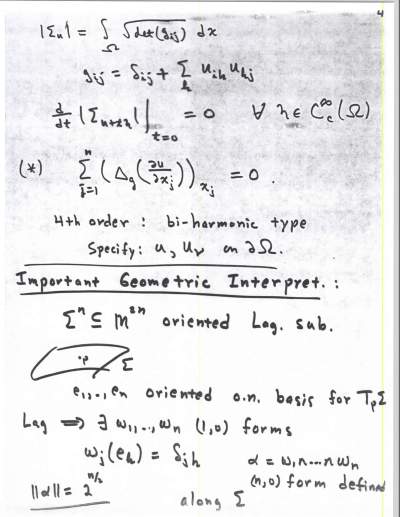 4
|Σ_u| = ∫_Ω √det(g_ij) dx
g_ij = δ_ij + Σ_k u_ik u_kj
d/dt |Σ_{u+tη}| |_{t=0} = 0 ∀ η ∈ C_c^∞(Ω)
(*) Σ_{j=1}^n (Δ_g(∂u/∂x_j))_{x_j} = 0.
4th order : bi-harmonic type
Specify: u, u_ν on ∂Ω.
Important Geometric Interpret. :
Σ^n ⊆ M^{2n} oriented Lag. sub.
·p Σ
e_1,.., e_n oriented o.n. basis for T_pΣ
Lag ⟹ ∃ ω_1,.., ω_n (1,0) forms
ω_j(e_k) = δ_jk α = ω_1∧...∧ω_n
(n,0) form defined
||α|| = 2^{n/2} along Σ